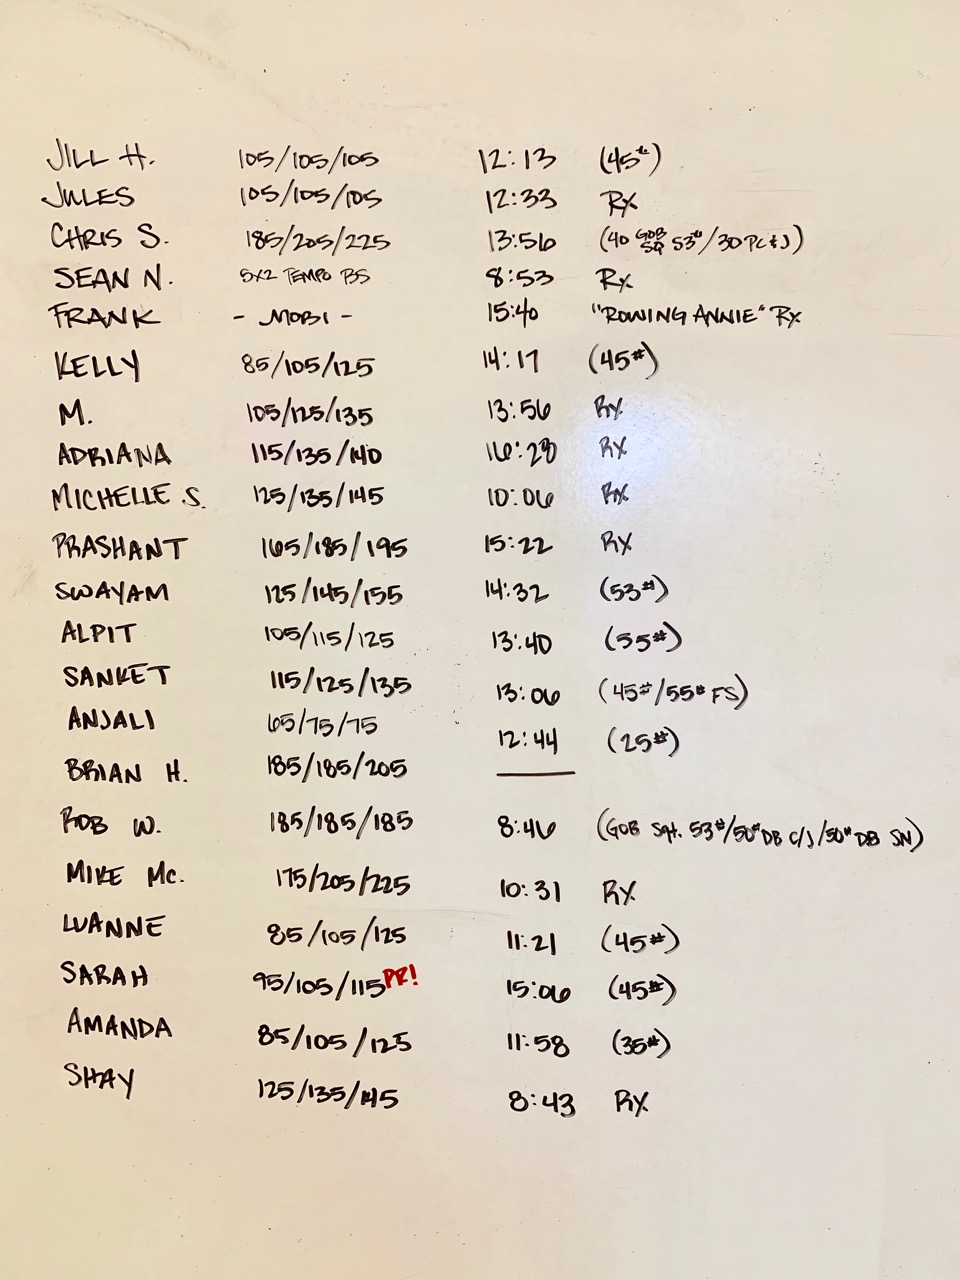 JILL H. 105/105/105 12:13 (45#)
JULES 105/105/105 12:33 RX
CHRIS S. 185/205/225 13:56 (40 GOB SQ 53#/30 PC & J)
SEAN N. 5X2 TEMPO BS 8:53 RX
FRANK - MOBI - 15:40 "ROWING ANNIE" RX
KELLY 85/105/125 14:17 (45#)
M. 105/125/135 13:56 RX
ADRIANA 115/135/140 16:28 RX
MICHELLE S. 125/135/145 10:06 RX
PRASHANT 165/185/195 15:22 RX
SWAYAM 125/145/155 14:32 (53#)
ALPIT 105/115/125 13:40 (55#)
SANKET 115/125/135 13:06 (45#/55# FS)
ANJALI 65/75/75 12:44 (25#)
BRIAN H. 185/185/205
ROB W. 185/185/185 8:46 (GOB SQt. 53#/50# DB C/J/50# DB SN)
MIKE MC. 175/205/225 10:31 RX
LUANNE 85/105/125 11:21 (45#)
SARAH 95/105/115 PR! 15:06 (45#)
AMANDA 85/105/125 11:58 (35#)
SHAY 125/135/145 8:43 RX